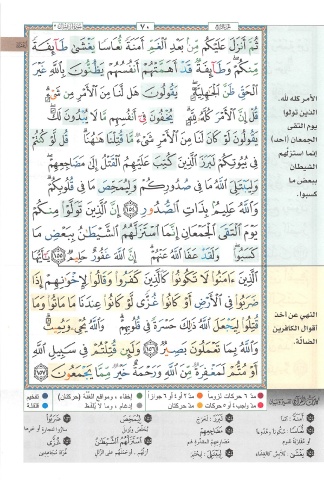 ٧٠
ثُمَّ أَنزَلَ عَلَيْكُم مِّنۢ بَعْدِ ٱلْغَمِّ أَمَنَةً نُّعَاسًا يَغْشَىٰ طَآئِفَةً
مِّنكُمْ ۖ وَطَآئِفَةٌ قَدْ أَهَمَّتْهُمْ أَنفُسُهُمْ يَظُنُّونَ بِٱللَّهِ غَيْرَ
ٱلْحَقِّ ظَنَّ ٱلْجَٰهِلِيَّةِ ۖ يَقُولُونَ هَل لَّنَا مِنَ ٱلْأَمْرِ مِن شَىْءٍ ۗ
قُلْ إِنَّ ٱلْأَمْرَ كُلَّهُۥ لِلَّهِ ۗ يُخْفُونَ فِىٓ أَنفُسِهِم مَّا لَا يُبْدُونَ لَكَ ۖ
يَقُولُونَ لَوْ كَانَ لَنَا مِنَ ٱلْأَمْرِ شَىْءٌ مَّا قُتِلْنَا هَٰهُنَا ۗ قُل لَّوْ كُنتُمْ
فِى بُيُوتِكُمْ لَبَرَزَ ٱلَّذِينَ كُتِبَ عَلَيْهِمُ ٱلْقَتْلُ إِلَىٰ مَضَاجِعِهِمْ ۖ
وَلِيَبْتَلِىَ ٱللَّهُ مَا فِى صُدُورِكُمْ وَلِيُمَحِّصَ مَا فِى قُلُوبِكُمْ ۗ
وَٱللَّهُ عَلِيمٌۢ بِذَاتِ ٱلصُّدُورِ ١٥٤ إِنَّ ٱلَّذِينَ تَوَلَّوْا۟ مِنكُمْ
يَوْمَ ٱلْتَقَى ٱلْجَمْعَانِ إِنَّمَا ٱسْتَزَلَّهُمُ ٱلشَّيْطَٰنُ بِبَعْضِ مَا
كَسَبُوا۟ ۖ وَلَقَدْ عَفَا ٱللَّهُ عَنْهُمْ ۗ إِنَّ ٱللَّهَ غَفُورٌ حَلِيمٌ ١٥٥ يَٰٓأَيُّهَا
ٱلَّذِينَ ءَامَنُوا۟ لَا تَكُونُوا۟ كَٱلَّذِينَ كَفَرُوا۟ وَقَالُوا۟ لِإِخْوَٰنِهِمْ إِذَا
ضَرَبُوا۟ فِى ٱلْأَرْضِ أَوْ كَانُوا۟ غُزًّى لَّوْ كَانُوا۟ عِندَنَا مَا مَاتُوا۟ وَمَا
قُتِلُوا۟ لِيَجْعَلَ ٱللَّهُ ذَٰلِكَ حَسْرَةً فِى قُلُوبِهِمْ ۗ وَٱللَّهُ يُحْىِۦ وَيُمِيتُ ۗ
وَٱللَّهُ بِمَا تَعْمَلُونَ بَصِيرٌ ١٥٦ وَلَئِن قُتِلْتُمْ فِى سَبِيلِ ٱللَّهِ
أَوْ مُتُّمْ لَمَغْفِرَةٌ مِّنَ ٱللَّهِ وَرَحْمَةٌ خَيْرٌ مِّمَّا يَجْمَعُونَ ١٥٧
الأمر كله لله.
الذين تولوا
يوم التقى
الجمعان (أحد)
إنما استزلهم
الشيطان
ببعض ما
كسبوا.
النهي عن أخذ
أقوال الكافرين
الضالّة.
مدّ ٦ حركات لزوماً
مدّ ٢ أو ٤ أو ٦ جوازاً
إخفاء، ومواقع الغُنَّة (حركتان)
تفخيم
مدّ حركتان
إدغام، وما لا يُلفَظ
قلقلة